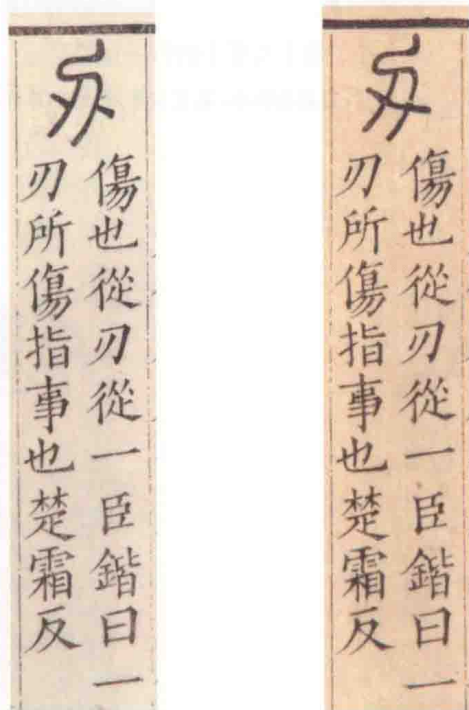 刅
傷也從刃從一臣鍇曰一
刃所傷指事也楚霜反
刅
傷也從刃從一臣鍇曰一
刃所傷指事也楚霜反